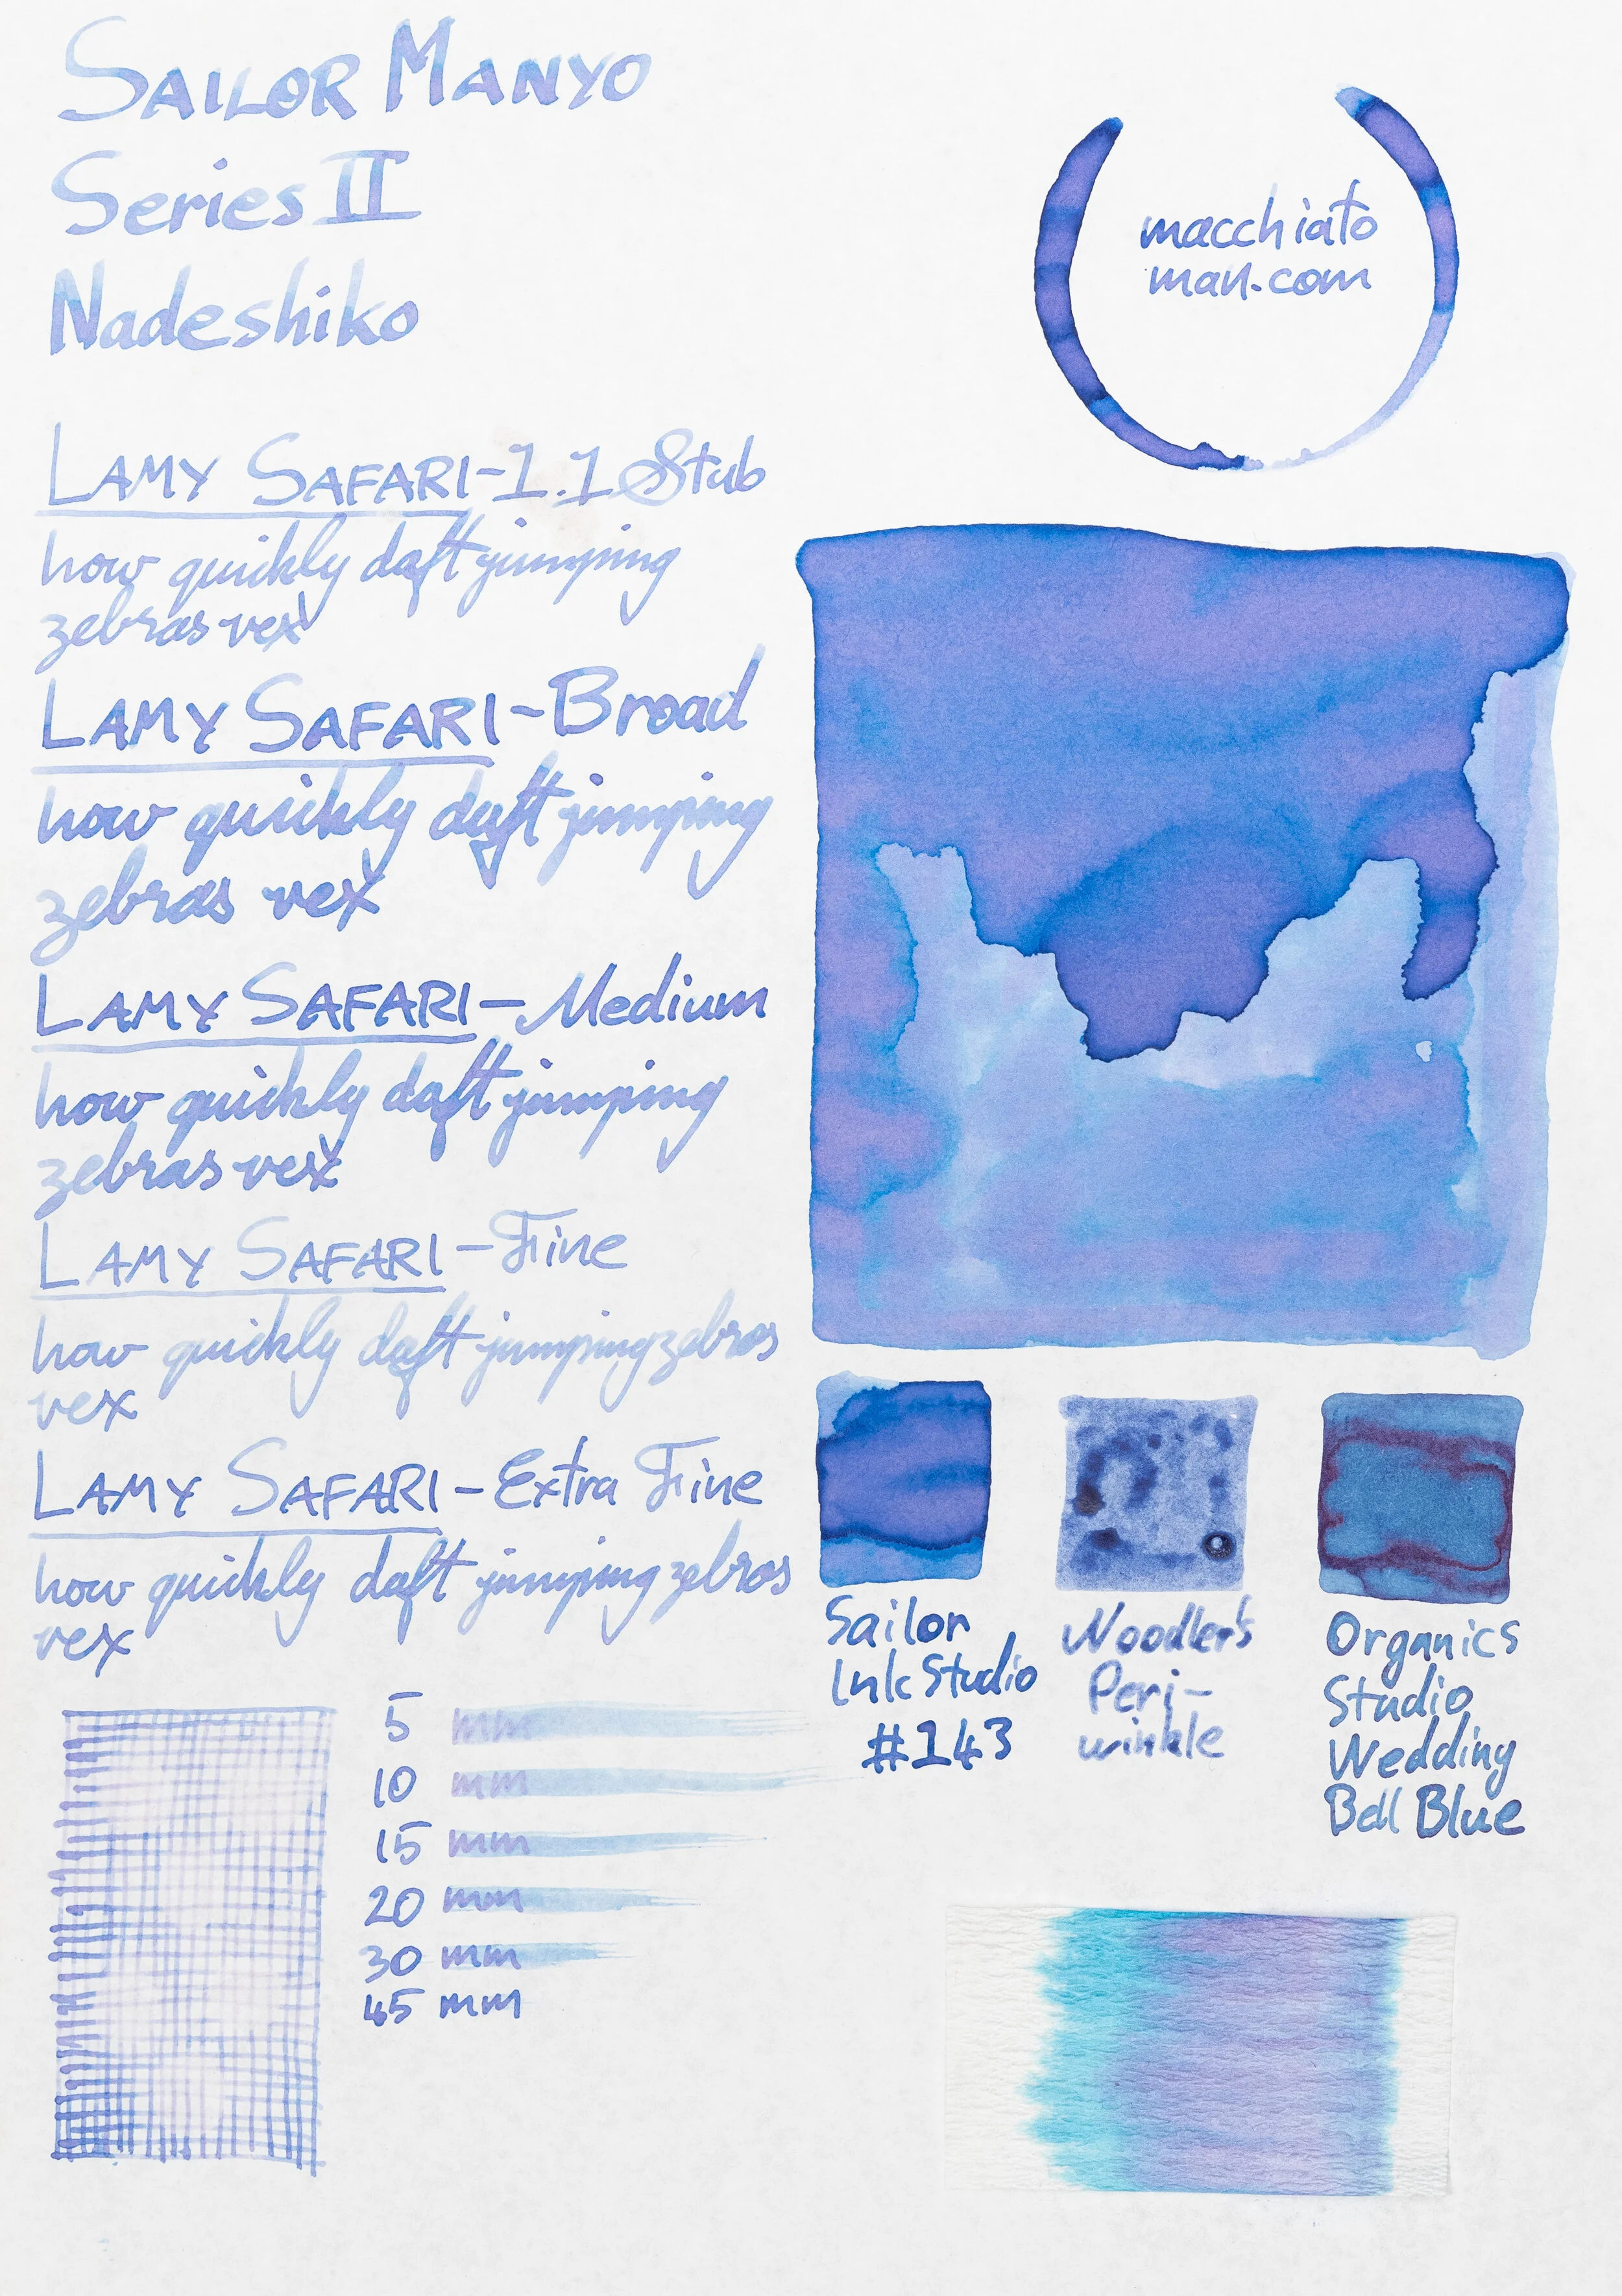 SAILOR MANYO
Series II
Nadeshiko
macchiato
man.com
LAMY SAFARI-1.1 Stub
how quickly daft jumping
zebras vex
LAMY SAFARI-Broad
how quickly daft jumping
zebras vex
LAMY SAFARI-Medium
how quickly daft jumping
zebras vex
LAMY SAFARI-Fine
how quickly daft jumping zebras
vex
LAMY SAFARI-Extra Fine
how quickly daft jumping zebras
vex
5 mm
10 mm
15 mm
20 mm
30 mm
45 mm
Sailor
Ink Studio
#143
Noodler's
Peri-
winkle
Organics
Studio
Wedding
Bell Blue